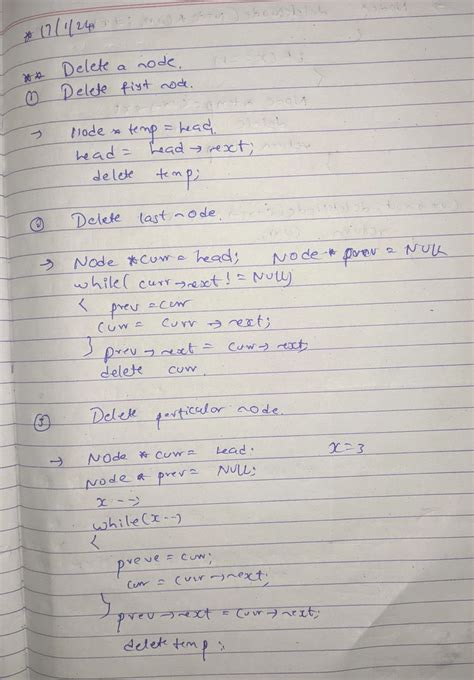 * 17/1/24
** Delete a node.
① Delete first node.
→ Node * temp = head.
head = head → next;
delete temp;
② Delete last node.
→ Node * curr = head; Node * prev = NULL
while( curr → next != NULL)
{ prev = curr
curr = curr → next;
} prev → next = curr → next;
delete curr.
③ Delete particular node.
→ Node * curr = head; x=3
Node * prev = NULL;
x --;
while(x--)
{
preve = curr;
curr = curr → next;
} prev → next = curr → next;
delete temp;